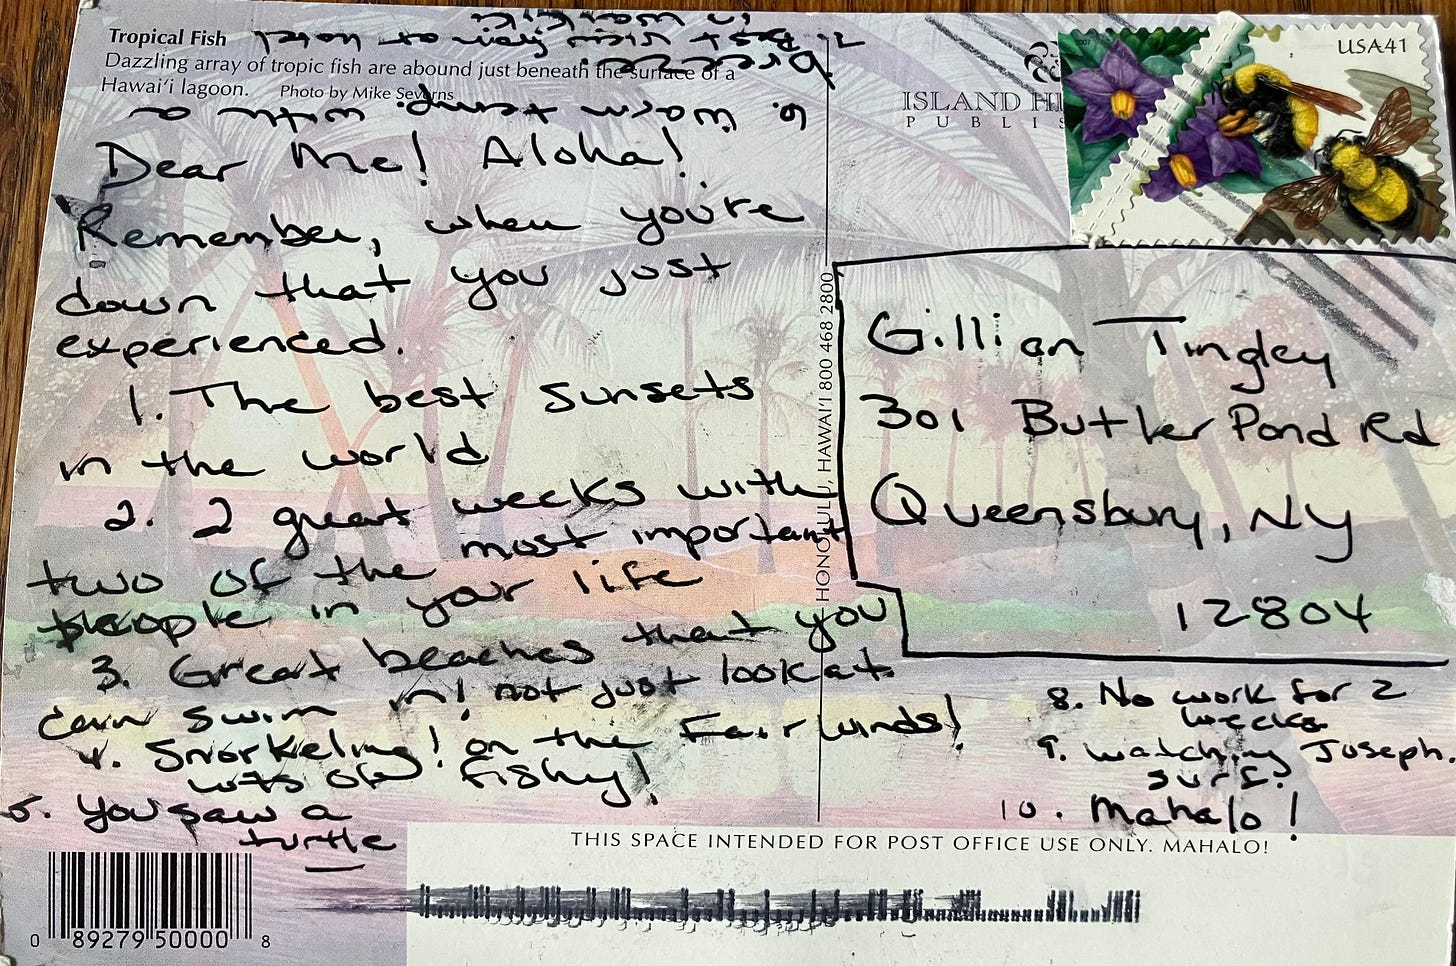 Tropical Fish
Dazzling array of tropic fish are abound just beneath the surface of a
Hawai'i lagoon. Photo by Mike Severns
ISLAND HE
PUBLIS
2007
USA41
Dear Me! Aloha!
Remember, when you're
down that you just
experienced.
1. The best sunsets
in the world
2. 2 great weeks with
two of the most important
people in your life
3. Great beaches that you
can swim in! not just look at.
4. Snorkeling! on the Fair Winds!
lots of fishy!
5. You saw a
turtle
6. warm temp. with a
breeze!
7. Best view from a hotel
in world
8. No work for 2
weeks
9. watching Joseph.
surf?
10. Mahalo!
HONOLULU, HAWAI'I 800 468 2800
Gillian Tingley
301 Butler Pond Rd
Queensbury, NY
12804
THIS SPACE INTENDED FOR POST OFFICE USE ONLY. MAHALO!
0 89279 50000 8